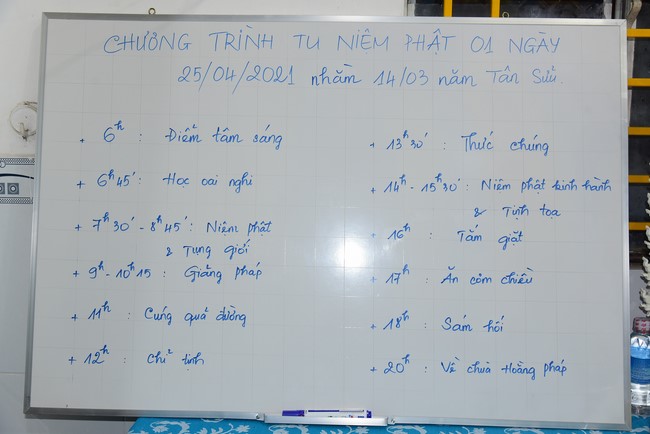 CHƯƠNG TRÌNH TU NIỆM PHẬT 01 NGÀY
25/04/2021 nhằm 14/03 năm Tân Sửu.
+ 6h : Điểm tâm sáng
+ 6h45' : Học oai nghi
+ 7h30' - 8h45' : Niệm phật
& Tụng giới
+ 9h - 10h15 : Giảng pháp
+ 11h : Cúng quả đường
+ 12h : Chỉ tịnh
+ 13h30' : Thức chúng
+ 14h - 15h30' : Niệm phật kinh hành
& Tịnh tọa
+ 16h : Tắm giặt
+ 17h : Ăn cơm chiều
+ 18h : Sám hối
+ 20h : Về chùa Hoằng pháp